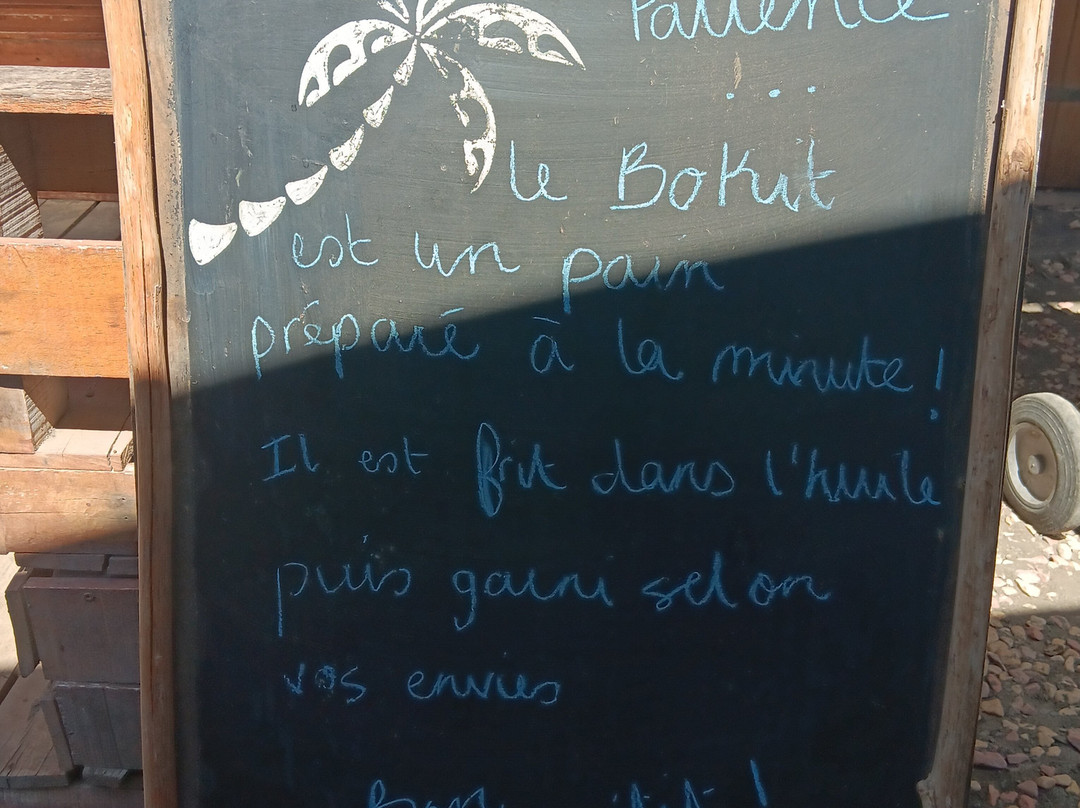 Patience
...
le Bokit
est un pain
préparé à la minute !
Il est frit dans l'huile
puis garni selon
vos envies